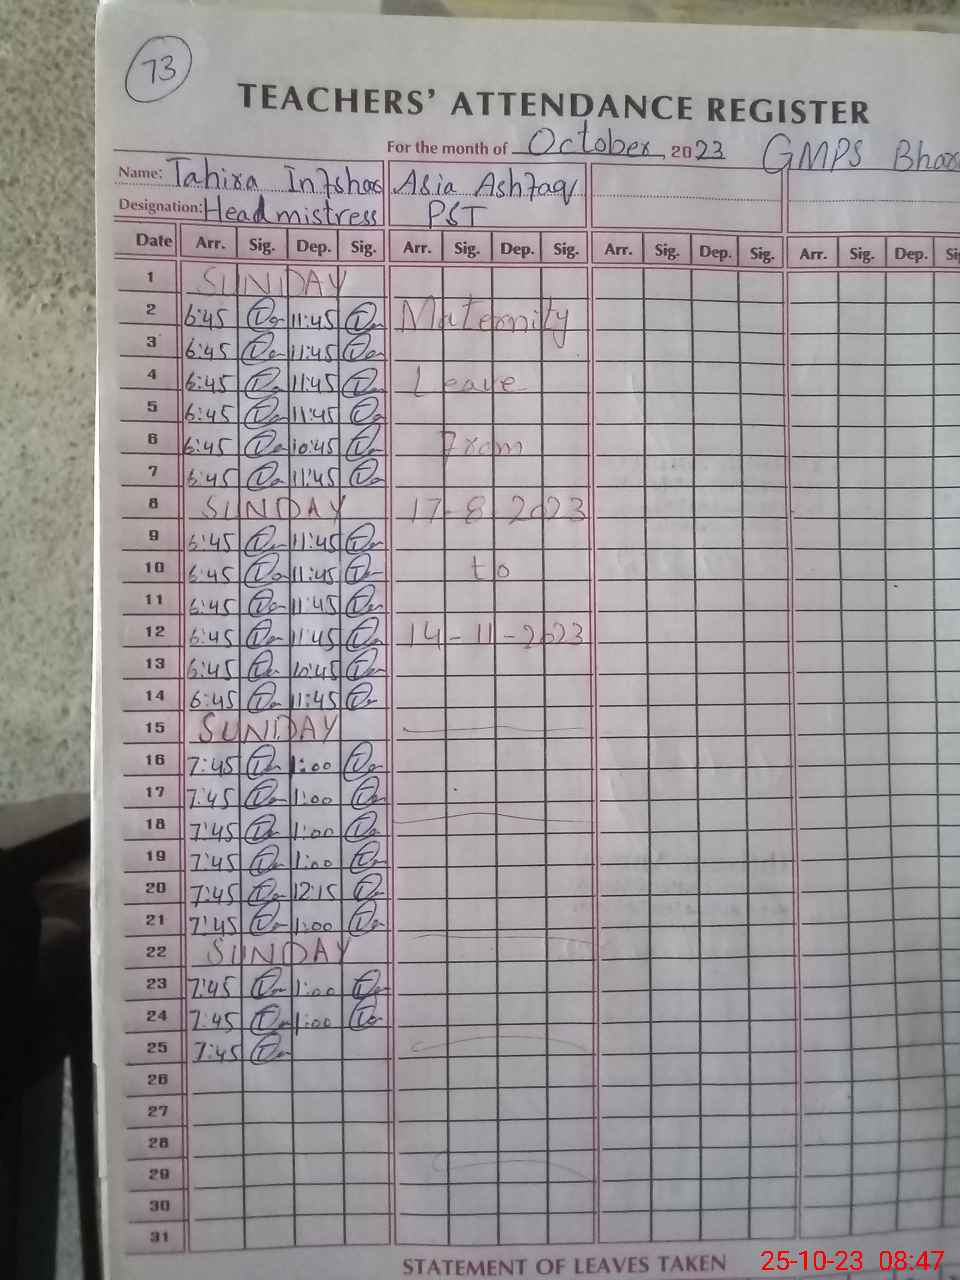 73
TEACHERS' ATTENDANCE REGISTER
For the month of October, 2023 GMPS
Name: Tahira Asia Ashfaq
Designation: Headmistress PST
Date Arr. Sig. Dep. Sig. Arr. Sig. Dep. Sig. Arr. Sig. Dep. Sig. Arr. Sig. Dep.
1 SUNDAY
2 6:45 11:45 Maternity
3 6:45 11:45
4 6:45 11:45 Leave
5 6:45 11:45
6 6:45 10:45 From
7 6:45 11:45
8 SUNDAY 17-8-2023
9 6:45 11:45
10 6:45 11:45 to
11 6:45 11:45
12 6:45 11:45 14-11-2023
13 6:45 10:45
14 6:45 11:45
15 SUNDAY
16 7:45 1:00
17 7:45 1:00
18 7:45 1:00
19 7:45 1:00
20 7:45 12:15
21 7:45 1:00
22 SUNDAY
23 7:45 1:00
24 7:45 1:00
25 7:45
26
27
28
29
30
31
STATEMENT OF LEAVES TAKEN
25-10-23 08:47